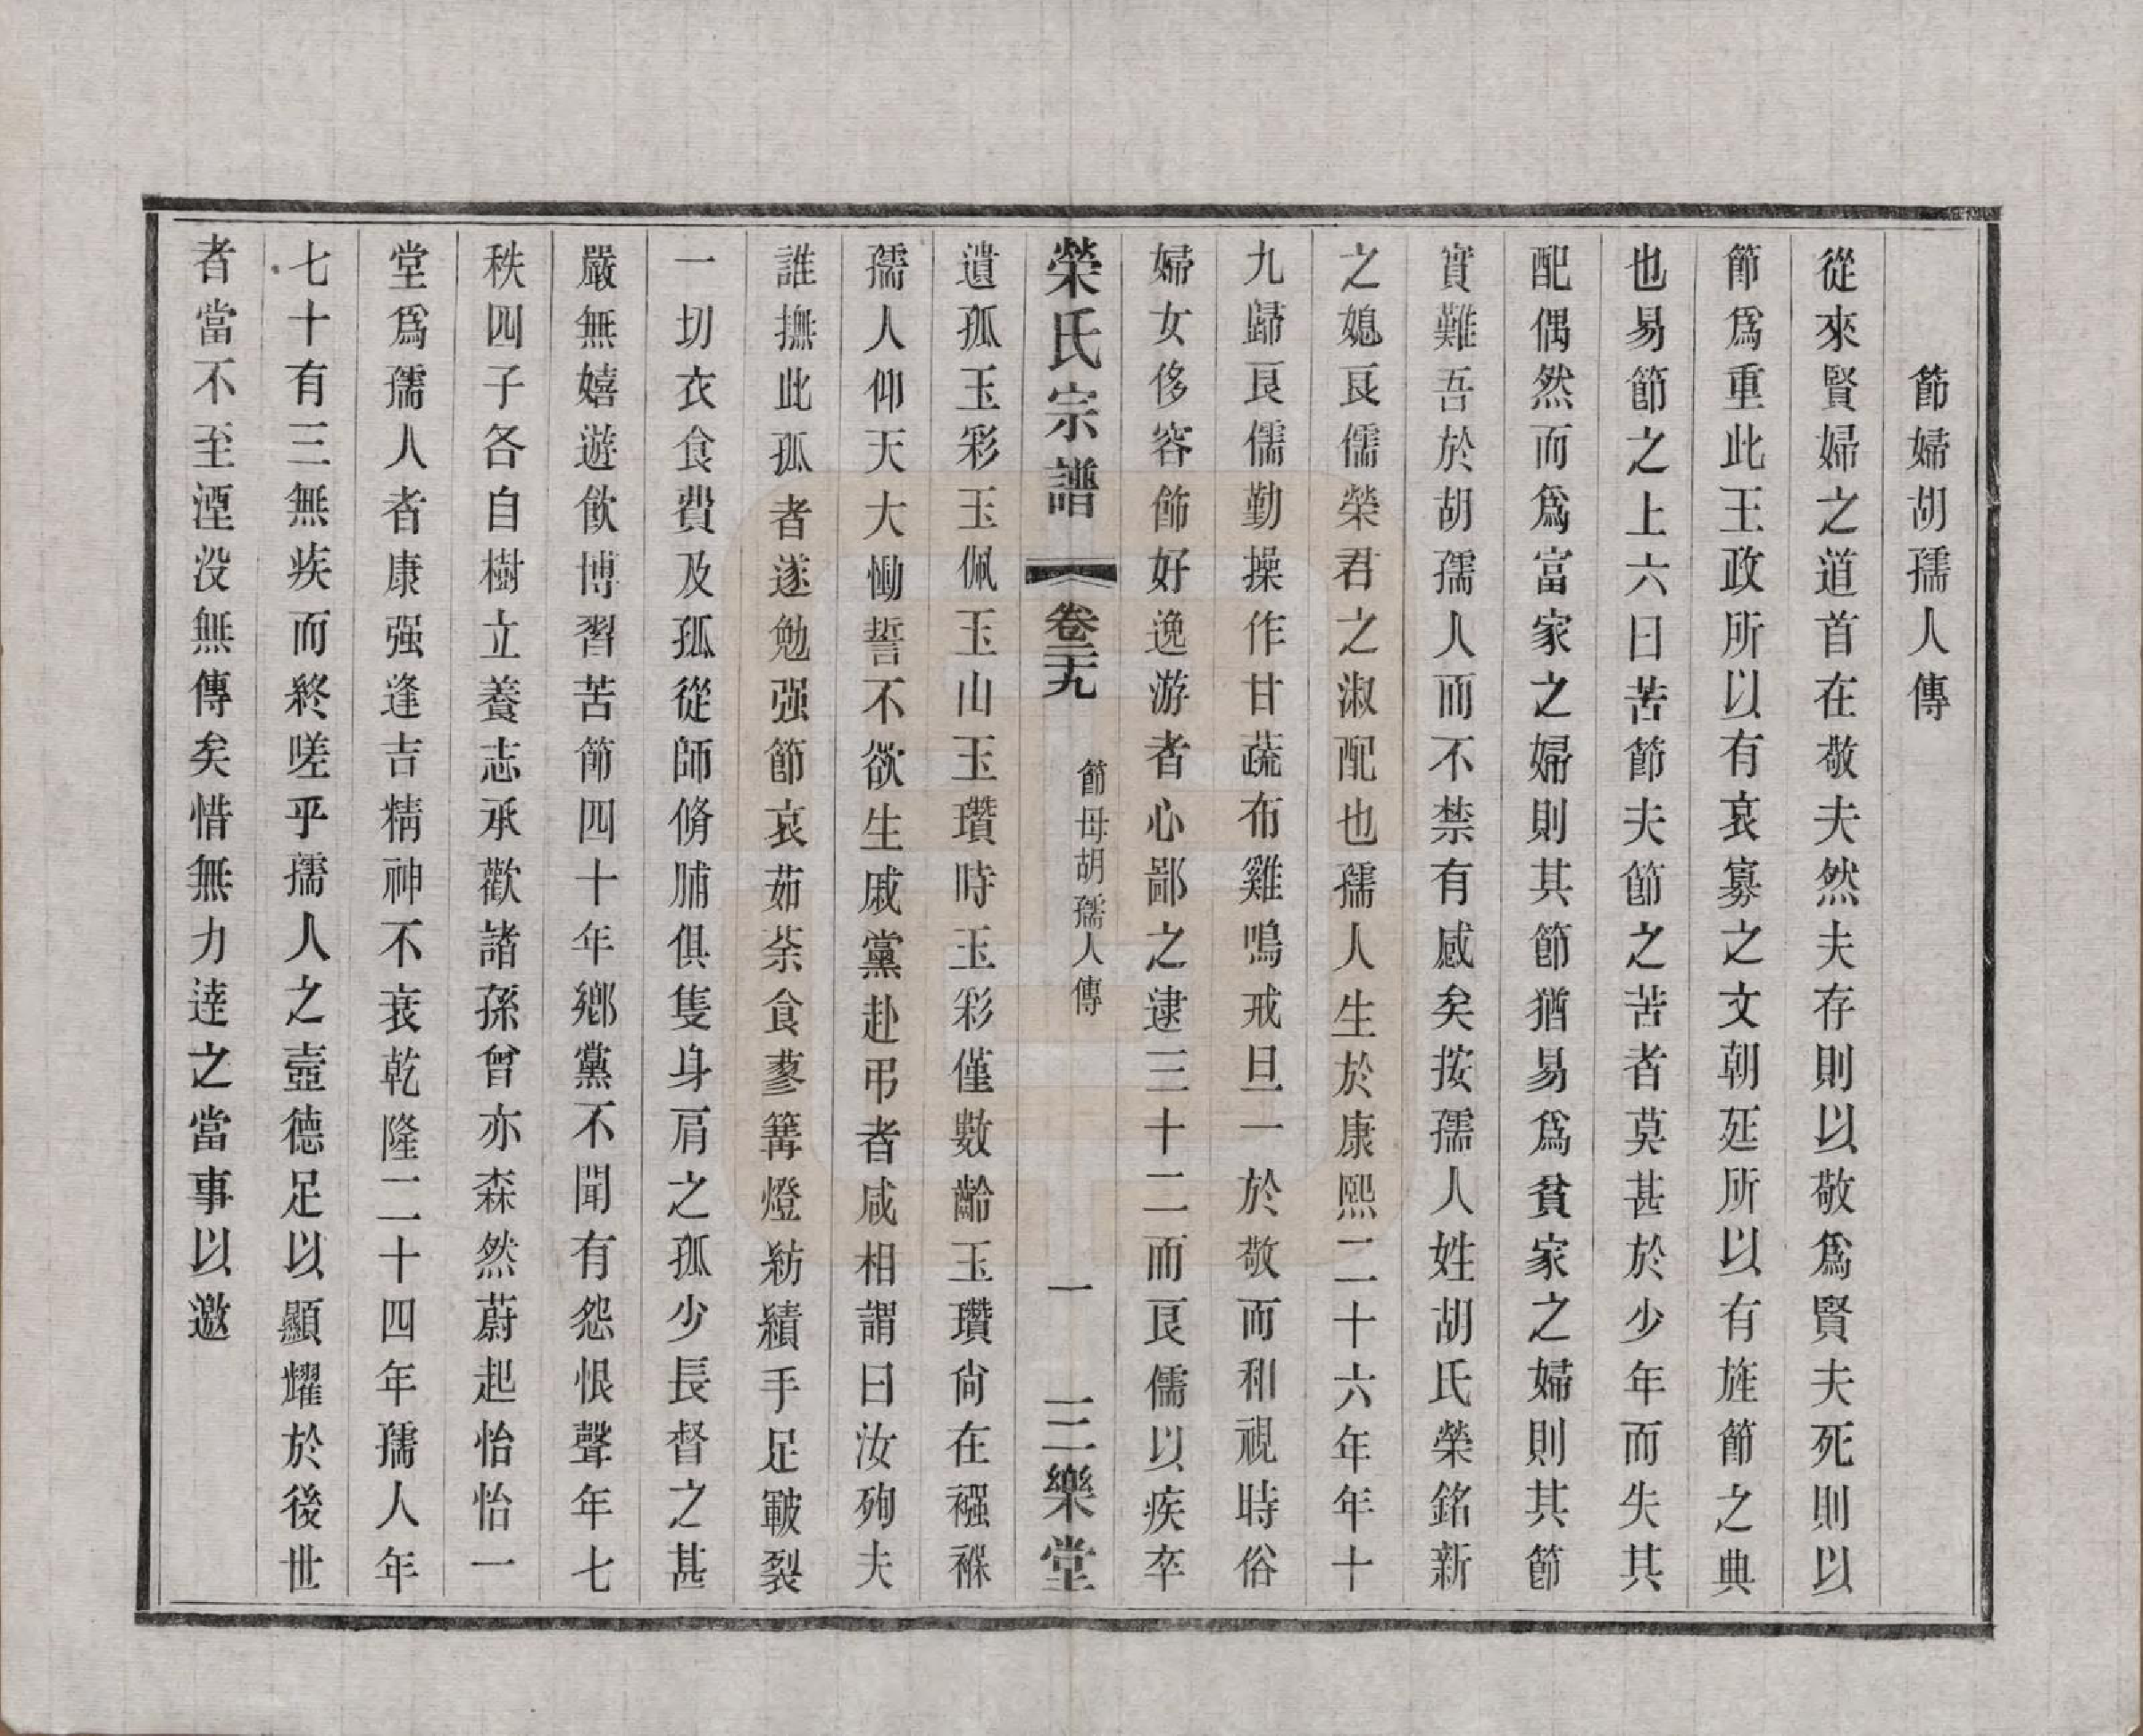 節婦胡孺人傳
從來賢婦之道首在敬夫然夫存則以敬爲賢夫死則以
節爲重此王政所以有哀寡之文朝廷所以有旌節之典
也易節之上六曰苦節夫節之苦者莫甚於少年而失其
配偶然而爲富家之婦則其節猶易爲貧家之婦則其節
實難吾於胡孺人而不禁有感矣按孺人姓胡氏榮銘新
之媳良儒榮君之淑配也孺人生於康熙二十六年年十
九歸良儒勤操作甘蔬布雞鳴戒旦一於敬而和視時俗
婦女侈容飾好逸游者心鄙之逮三十二而良儒以疾卒
榮氏宗譜 卷三十九 節母胡孺人傳 一 三樂堂
遺孤玉彩玉佩玉山玉瓚時玉彩僅數齡玉瓚尙在襁褓
孺人仰天大慟誓不欲生戚黨赴弔者咸相謂曰汝殉夫
誰撫此孤者遂勉强節哀茹荼食蓼篝燈紡績手足皸裂
一切衣食費及孤從師脩脯俱隻身肩之孤少長督之甚
嚴無嬉遊飲博習苦節四十年鄉黨不聞有怨恨聲年七
秩四子各自樹立養志承歡諸孫曾亦森然蔚起怡怡一
堂爲孺人者康强逢吉精神不衰乾隆二十四年孺人年
七十有三無疾而終嗟乎孺人之壼德足以顯耀於後世
者當不至湮没無傳矣惜無力達之當事以邀